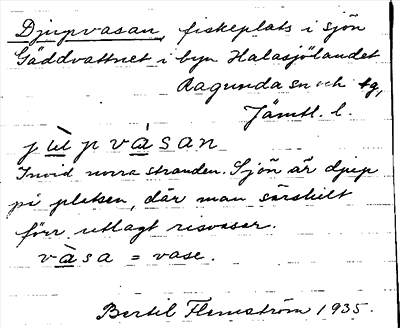 Djupvasan, fiskeplats i sjön
Gäddvattnet i byn Halasjölandet
Ragunda sn och tg,
Jämtl. l.
jùpvàsan
Invid norra stranden. Sjön är djup
på platsen, där man särskilt
förr utlagt risvasar.
vàsa = vase.
Bertil Flemström 1935.